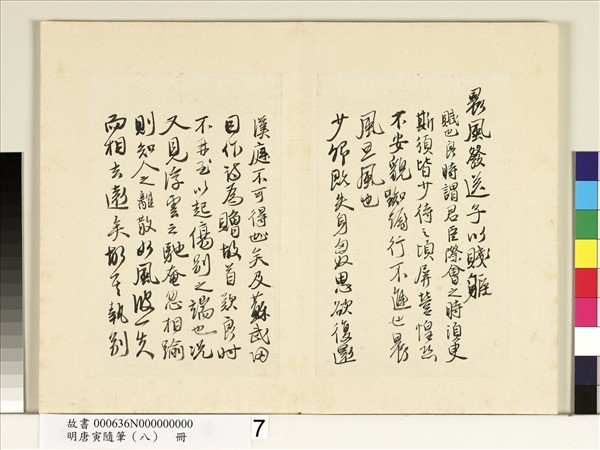 晨風發送子以賤軀
賦也良時謂君臣際會之時須臾
斯須皆少待之頃屏營惶恐
不安貌踟蹰行不進也晨
風旦風也
少卿既失身匈奴思欲復還
漢庭不可得矣及蘇武因
作詩為贈故首歎良時
不再至以起傷別之端也況
又見浮雲之馳奄忽相踰
則知人之離散如風波一失
而相去遠矣故下執別
故書 000636N000000000
明唐寅隨筆（八） 冊
7